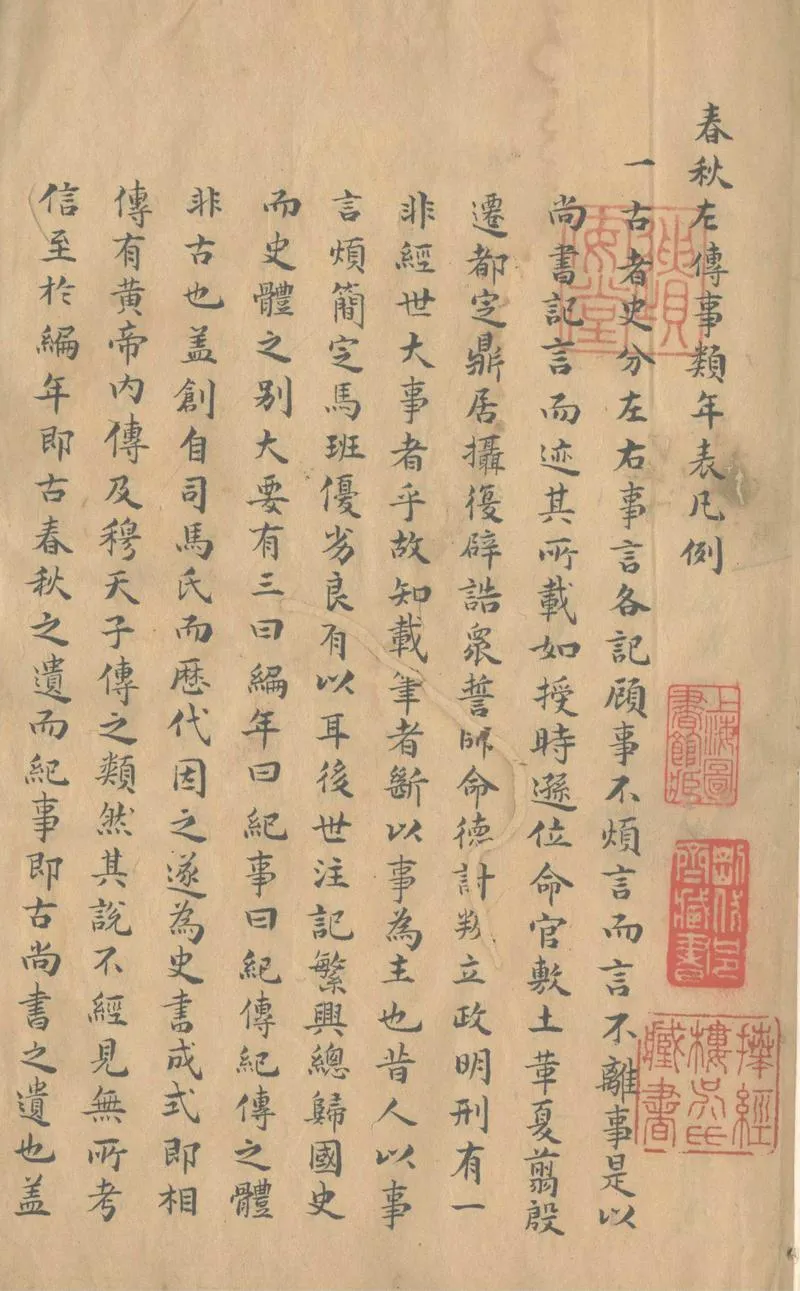 春秋左傳事類年表凡例
一古者史分左右事言各記顧事不煩言而言不離事是以
尚書記言而迹其所載如授時遜位命官敷土革夏翦殷
遷都定鼎居攝復辟誥衆誓師命德討叛立政明刑有一
非經世大事者乎故知載筆者斷以事為主也昔人以事
言煩簡定馬班優劣良有以耳後世注記繁興總歸國史
而史體之別大要有三曰編年曰紀事曰紀傳紀傳之體
非古也盖創自司馬氏而歷代因之遂為史書成式即相
傳有黄帝內傳及穆天子傳之類然其說不經見無所考
信至於編年即古春秋之遺而紀事即古尚書之遺也盖
上海圖
書館藏
捧經
樓
藏書